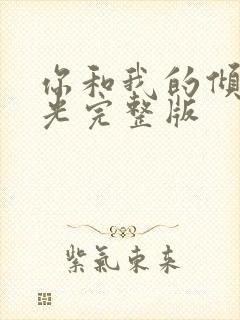 你和我的倾
光完整版
紫氣東来